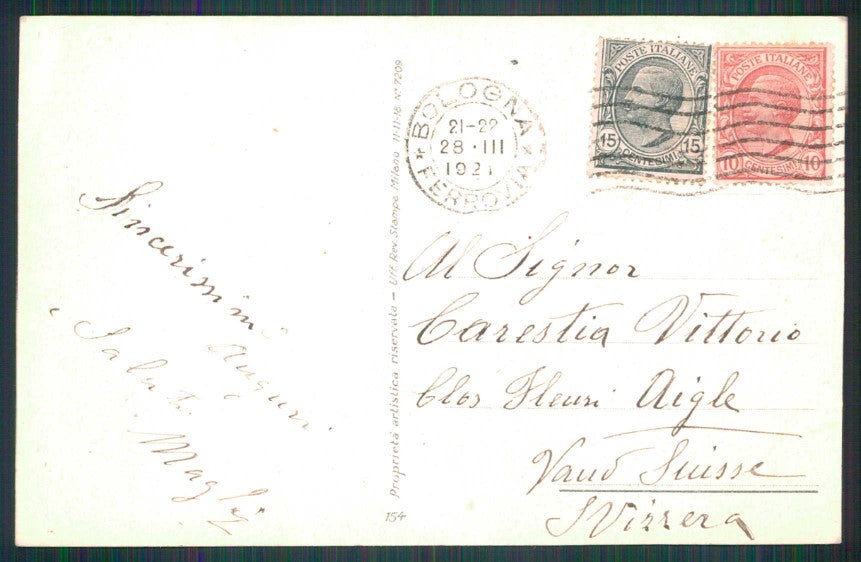 Sincerissimi
Auguri
e Saluti
Proprietà artistica riservata - Uff. Rev. Stampa Milano 11-11-18 N° 7209
154
BOLOGNA
21-22
28·III
1921
FERROVIA
POSTE ITALIANE
15 15
CENTESIMI
POSTE ITALIANE
10 10
CENTESIMI
Al Signor
Carestia Vittorio
Clos Fleuri Aigle
Vaud Suisse
SVizzera